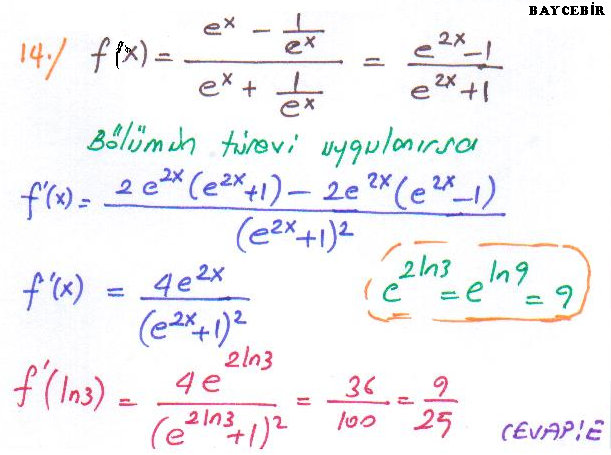 BAYCEBİR
14./ f(x) = (e^x - 1/e^x) / (e^x + 1/e^x) = (e^2x - 1) / (e^2x + 1)
Bölümün türevi uygulanırsa
f'(x) = (2e^2x (e^2x + 1) - 2e^2x (e^2x - 1)) / (e^2x + 1)^2
f'(x) = 4e^2x / (e^2x + 1)^2
e^2ln3 = e^ln9 = 9
f'(ln3) = 4e^2ln3 / (e^2ln3 + 1)^2 = 36/100 = 9/25
CEVAP:E